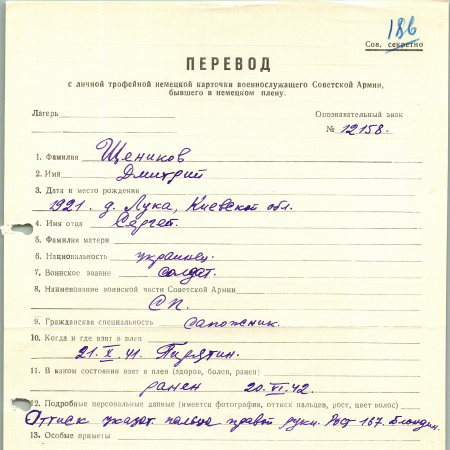 186
Сов. секретно
ПЕРЕВОД
с личной трофейной немецкой карточки военнослужащего Советской Армии,
бывшего в немецком плену.
Лагерь
Опознавательный знак
№ 12158.
1. Фамилия Щеников
2. Имя Дмитрий
3. Дата и место рождения
1921. д. Лука, Киевской обл.
4. Имя отца Сергей.
5. Фамилия матери
6. Национальность украинец.
7. Воинское звание солдат.
8. Наименование воинской части Советской Армии
СП.
9. Гражданская специальность сапожник.
10. Когда и где взят в плен
21. X. 41. Пирятин.
11. В каком состоянии взят в плен (здоров, болен, ранен)
ранен 20. VI. 42.
12. Подробные персональные данные (имеется фотография, оттиск пальцев, рост, цвет волос)
Оттиск указат. пальца правой руки. Рост 167. Блондин.
13. Особые приметы